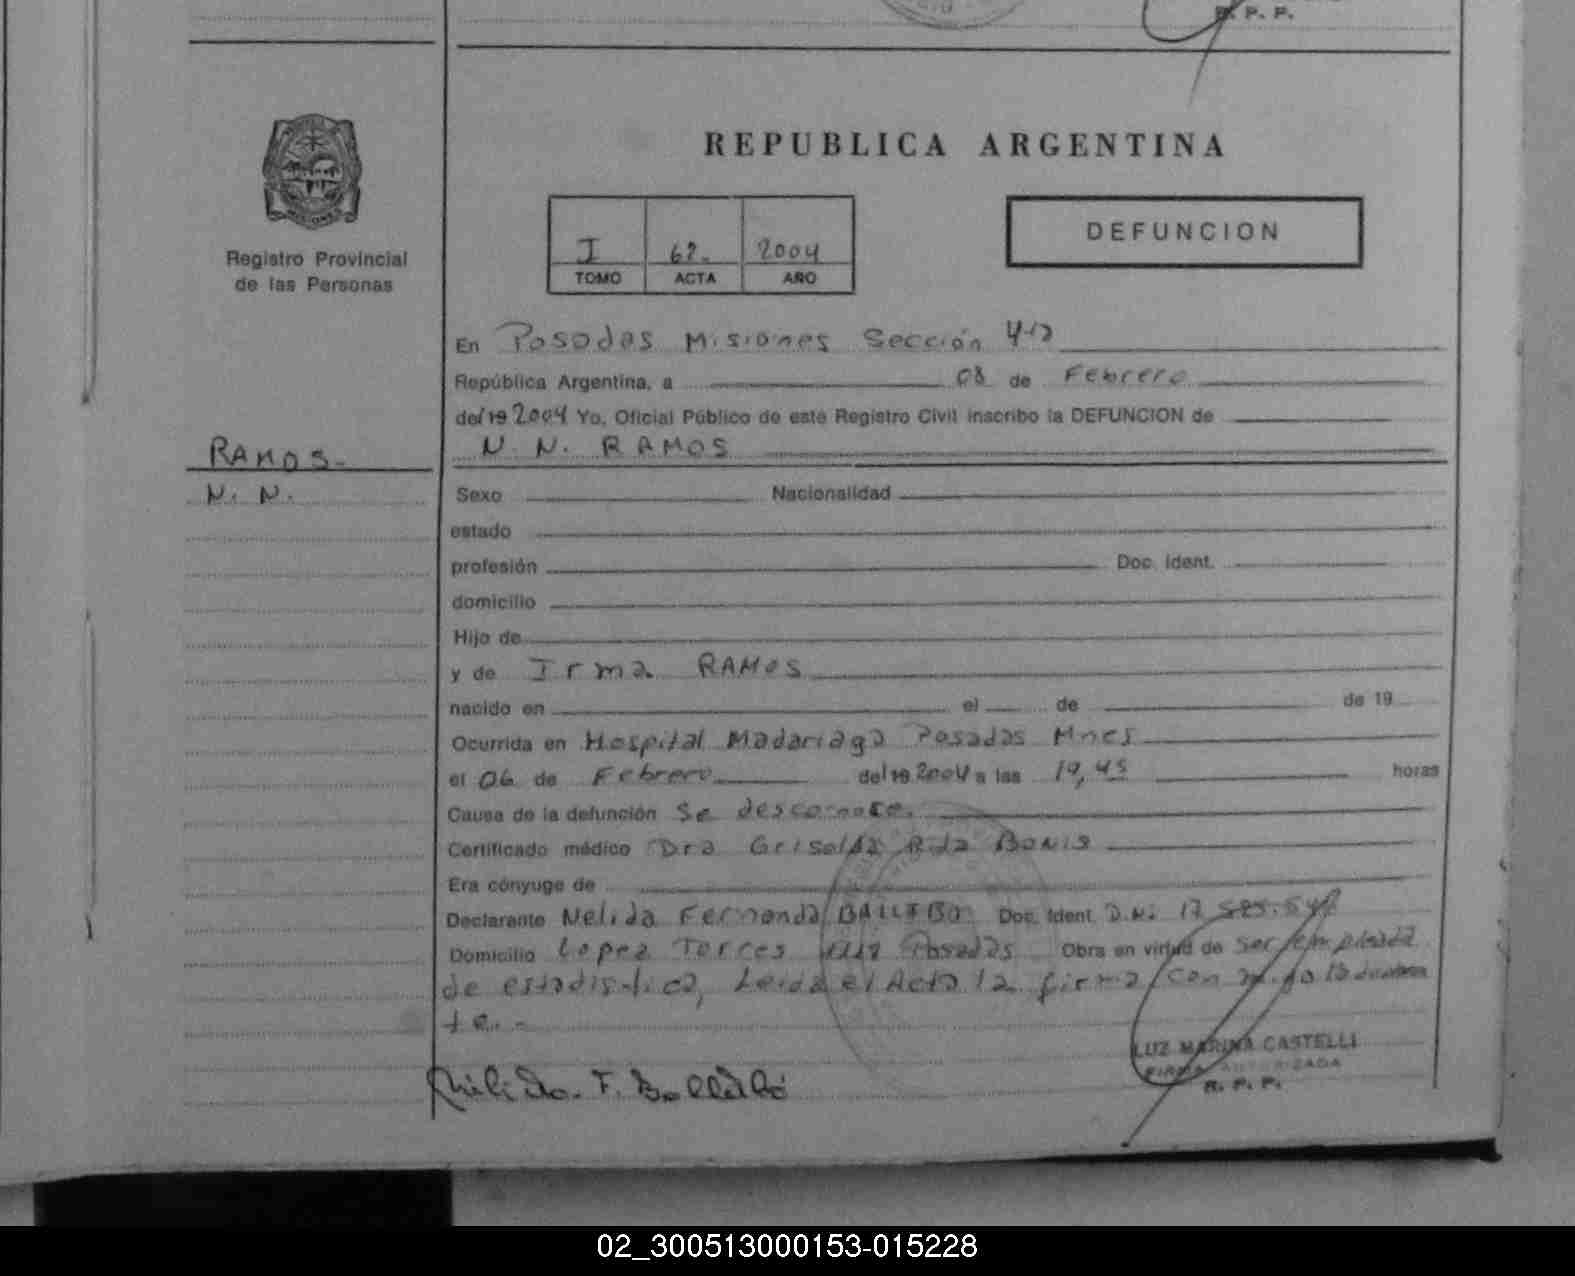 R. P. P.
REPUBLICA ARGENTINA
MISIONES
Registro Provincial
de las Personas
I 62. 2004
TOMO ACTA AÑO
DEFUNCION
En Posadas Misiones Sección 4ta
República Argentina, a 08 de Febrero
del 19 2004 Yo, Oficial Público de este Registro Civil inscribo la DEFUNCION de
N. N. RAMOS
RAMOS-
N. N.
Sexo Nacionalidad
estado
profesión Doc. Ident.
domicilio
Hijo de
y de Irma RAMOS
nacido en el de de 19
Ocurrida en Hospital Madariaga Posadas Mnes
el 06 de Febrero del 19 2004 a las 19,45 horas
Causa de la defunción Se desconoce.
Certificado médico Dra Griselda Bonis
Era cónyuge de
Declarante Nelida Fernanda Doc. Ident. D.Ni 17
Domicilio Lopez Torres Posadas Obra en virtud de Ser empleada
de estadistica, Leida el Acta la firma con migo la declaran
te.-
F.
LUZ MARINA CASTELLI
FIRMA AUTORIZADA
R. P. P.
02_300513000153-015228